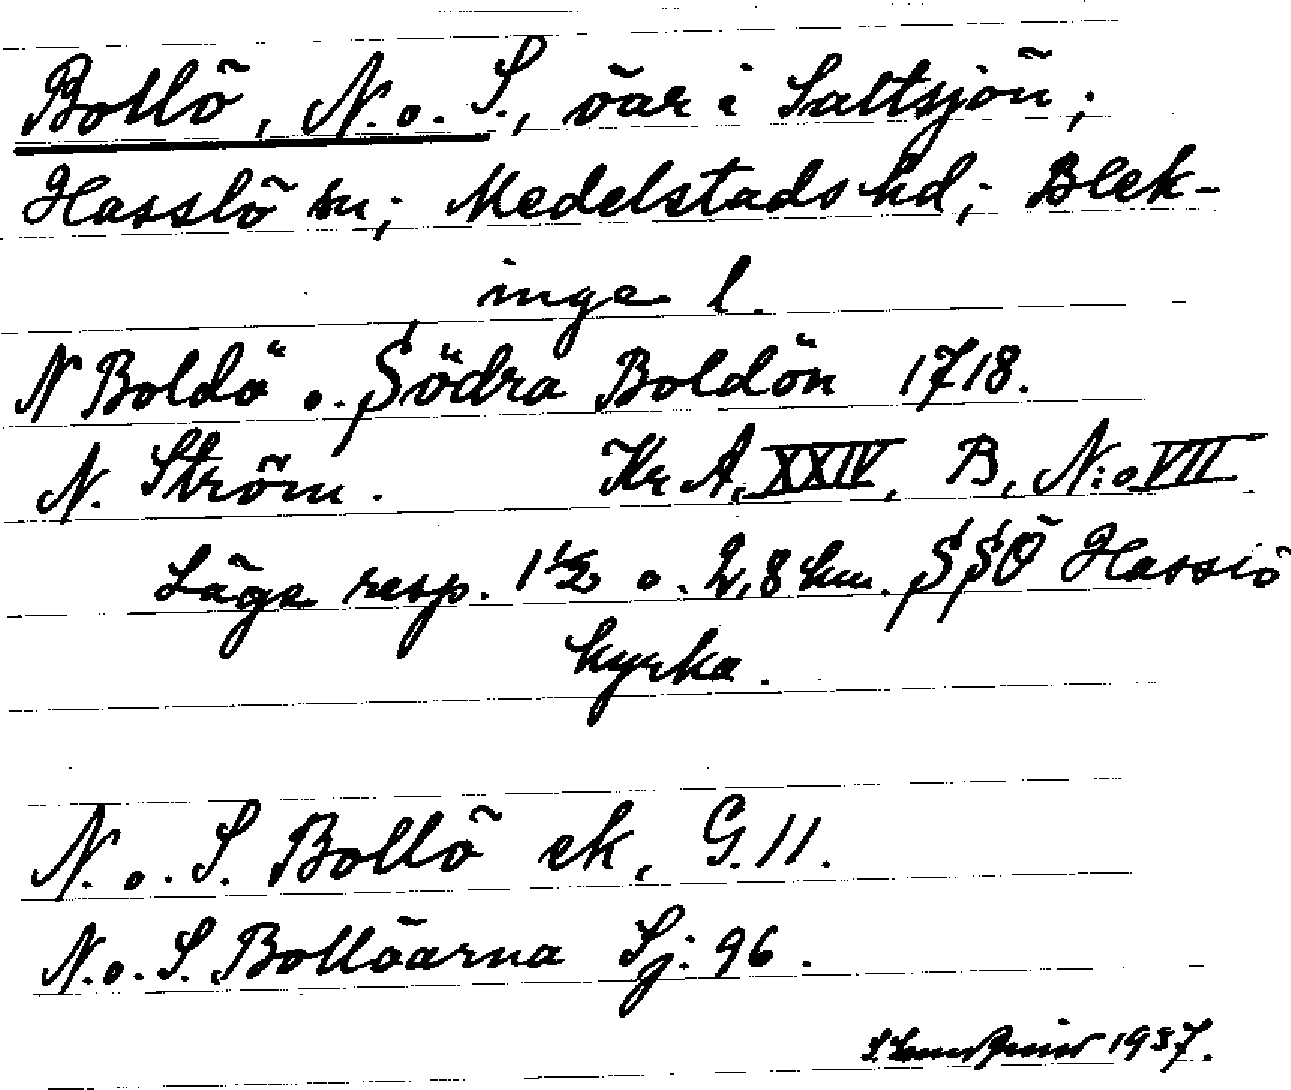 Bollö, N. o. S., öar i Saltsjön;
Hasslö sn; Medelstads hd; Blek-
inge l.
N Boldö o. Södra Boldön 1718.
N. Ström. Kr A, XXIV, B, N:o VII
Läge resp. 1½ o. 2,8 km. SSÖ Hasslö
kyrka.
N. o. S. Bollö ek, G. 11.
N. o. S. Bollöarna Sj: 96.
1937.